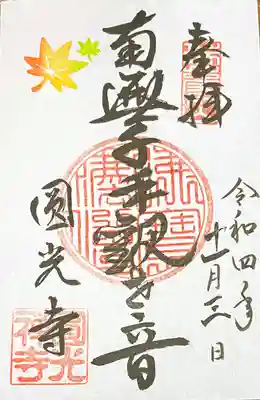 奉拝
令和四年
十一月三日
南無千手観世音
圓光寺
圓光
禅寺